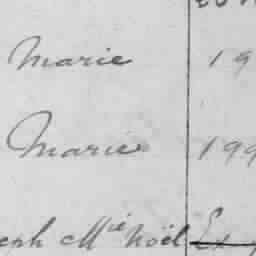 Marie 19
Marie 199
eph Mie Noël